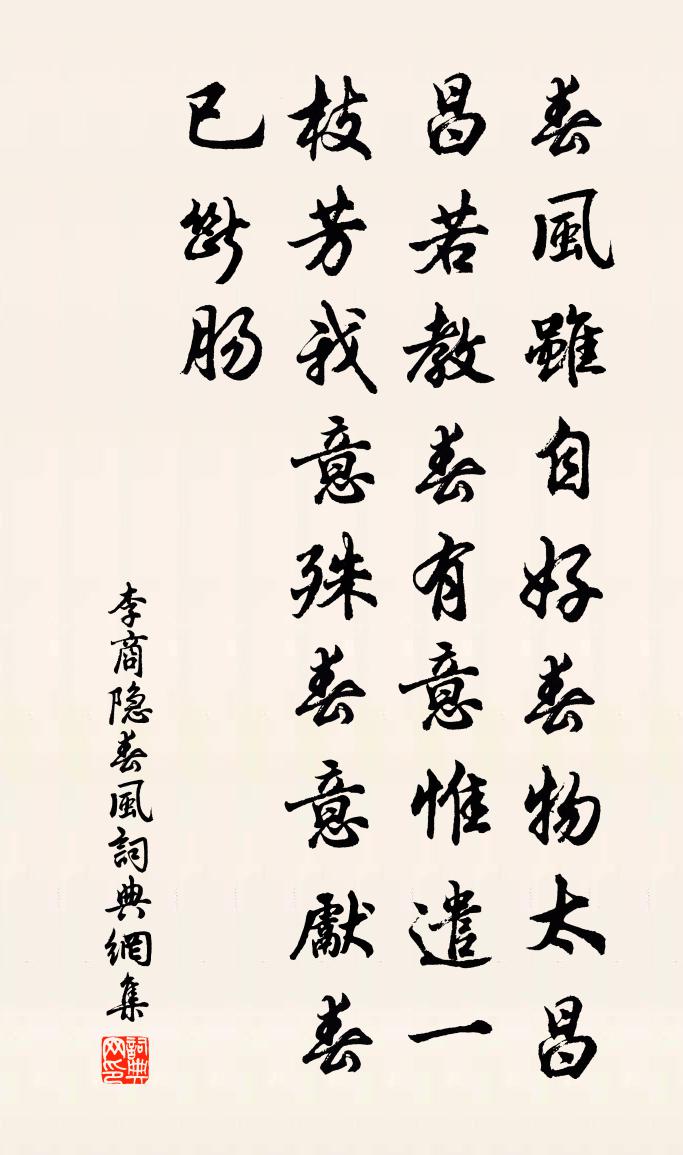 春風雖自好春物太昌
昌若教春有意惟遣一
枝芳我意殊春意獻春
已斷肠
李商隐春風詞典網集
詞典网印